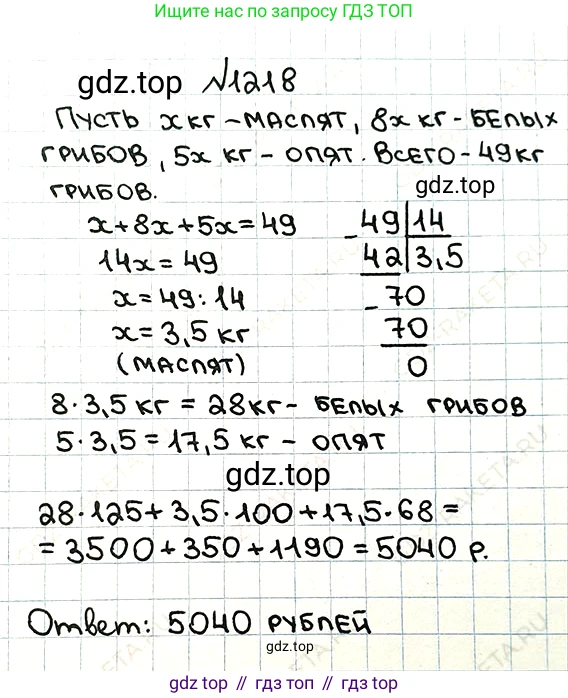 решают по запросу ГДЗ ТОП
gdz.top №1218
Пусть x кг - маслят, 8x кг - белых
грибов, 5x кг - опят. Всего - 49 кг
грибов.
gdz.top
x+8x+5x=49
14x=49
x=49:14
x=3,5 кг
(маслят)
- 49 | 14
42 | 3,5
- 70
70
0
8·3,5 кг = 28 кг - белых грибов
5·3,5 = 17,5 кг - опят
gdz.top
28·125 + 3,5·100 + 17,5·68 =
= 3500 + 350 + 1190 = 5040 р.
Ответ: 5040 рублей
gdz.top
gdz.top // гдз.топ // gdz.top